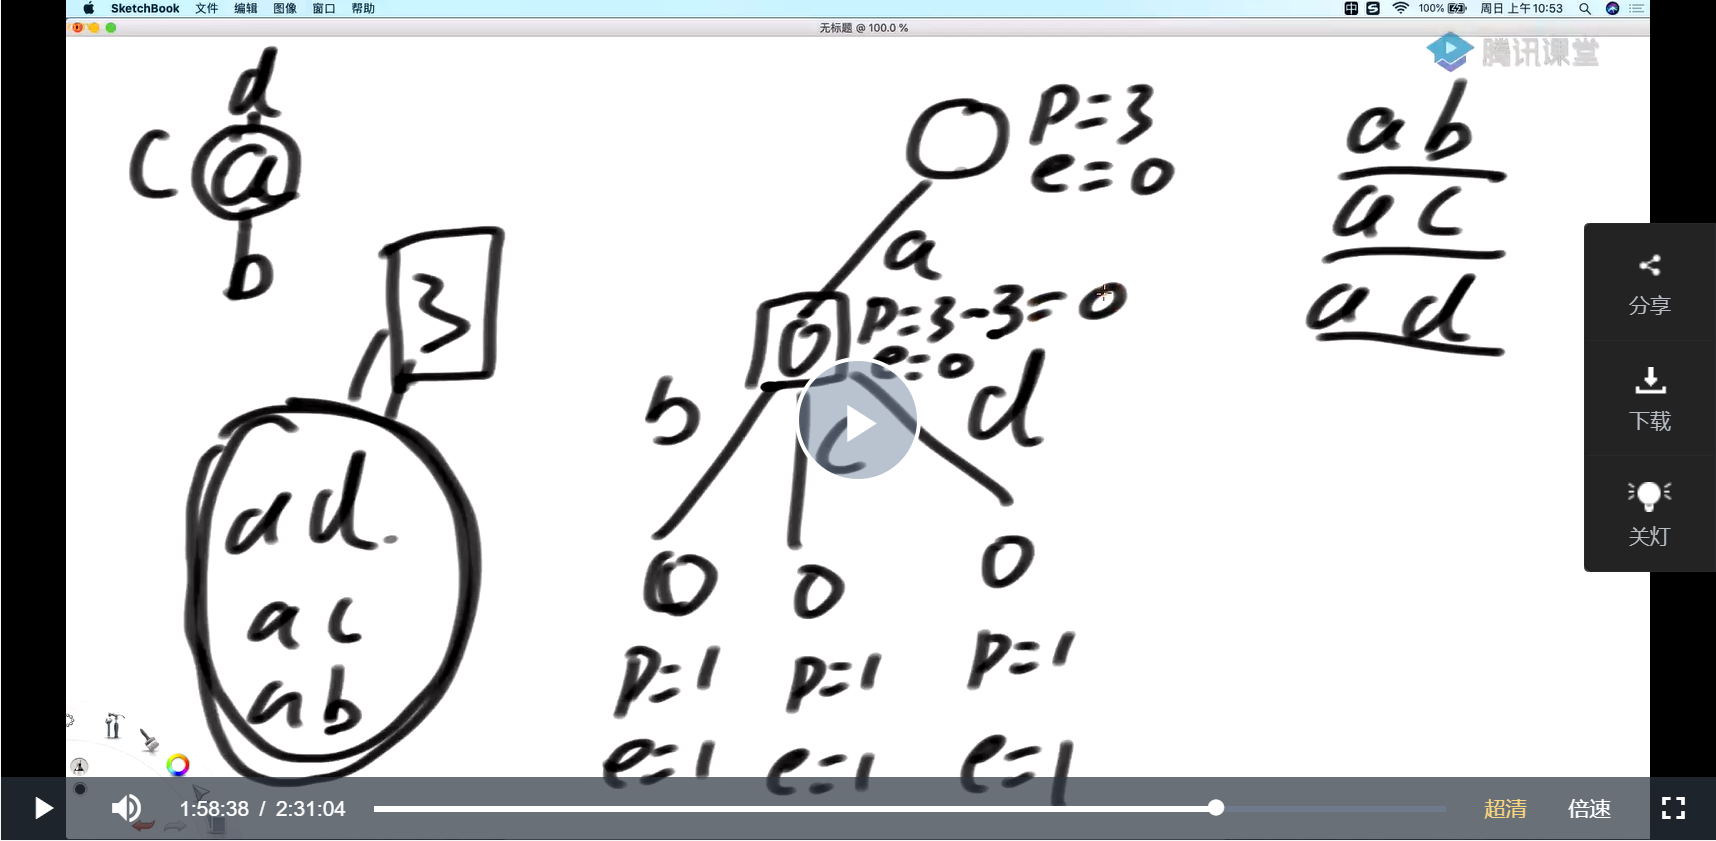 SketchBook 文件 编辑 图像 窗口 帮助
中 S 100% 周日 上午10:53
无标题 @ 100.0 %
腾讯课堂
d
c a
b
3
ad.
ac
ab
p=3
e=0
a
0 p=3-3=0
e=0
b c d
0 0 0
p=1 p=1 p=1
e=1 e=1 e=1
ab
ac
ad
分享
下载
关灯
1:58:38 / 2:31:04
超清 倍速